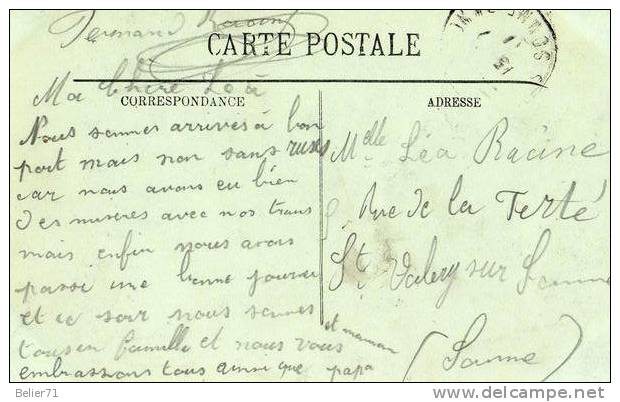 Fernand
CARTE POSTALE
Ma Chère Léa
CORRESPONDANCE
Nous sommes arrivés à bon
port mais non sans ruses
car nous avons eu bien
des misères avec nos trains
mais enfin nous avons
passé une bonne journée
et ce soir nous sommes
tous en famille et nous vous
embrassons tous ainsi que papa
et maman
ADRESSE
Melle Léa Racine
Rue de la Ferté
St Valery sur Somme
(Somme)
Belier71
delcampe.net